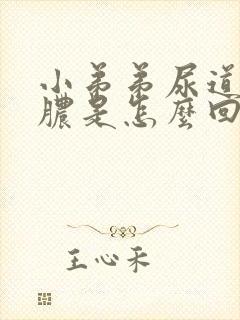 小弟弟尿道
膿是怎麼回
王心禾